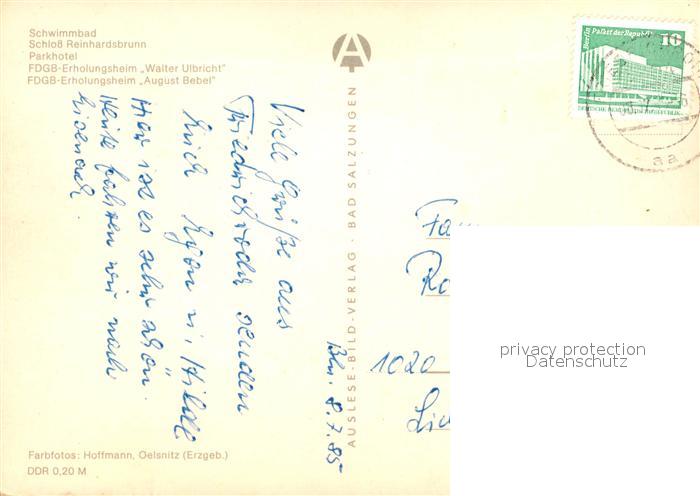 Schwimmbad
Schloß Reinhardsbrunn
Parkhotel
FDGB-Erholungsheim „Walter Ulbricht"
FDGB-Erholungsheim „August Bebel"
Viele Grüße aus
Friedrichroda senden
Euch Egon u. Hilde
Hier ist es sehr schön.
Heute fahren wir nach
Eisenach.
8.7.85
AUSLESE-BILD-VERLAG · BAD SALZUNGEN
Berlin Palast der Republik 10
DEUTSCHE DEMOKRATISCHE REPUBLIK
aa
Fam
1020
privacy protection
Datenschutz
Farbfotos: Hoffmann, Oelsnitz (Erzgeb.)
DDR 0,20 M